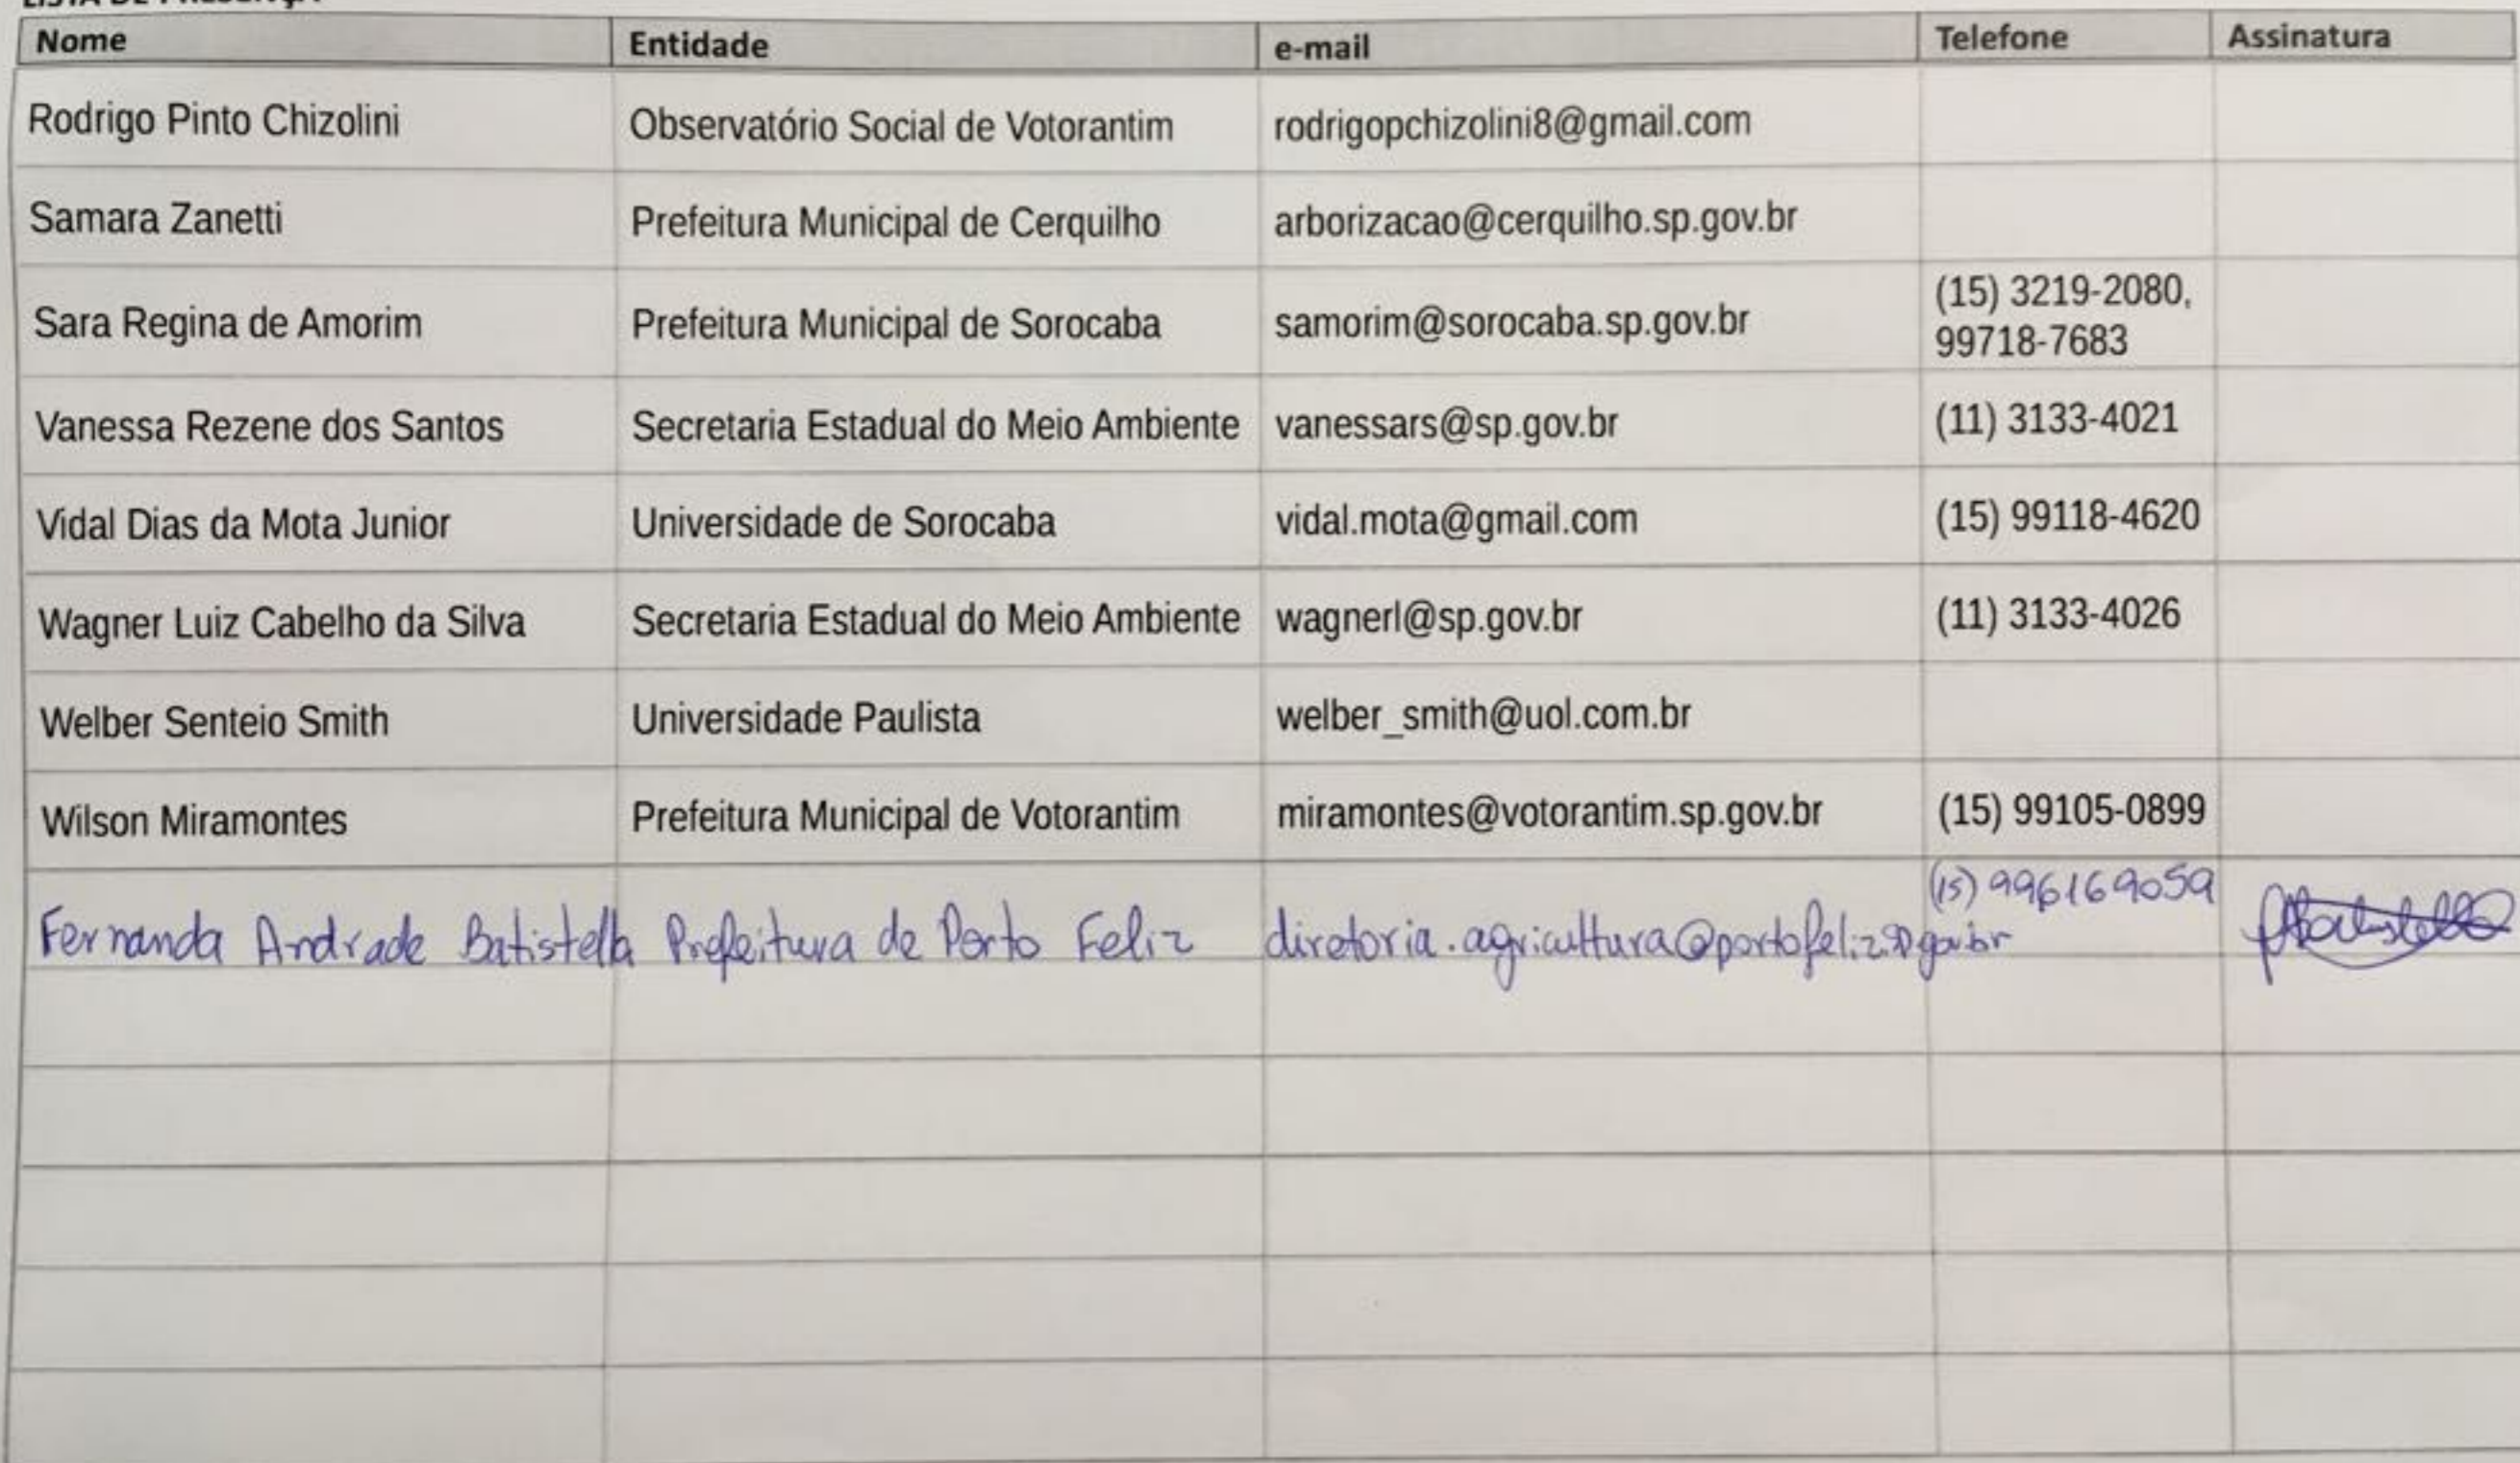 LISTA DE PRESENÇA
Nome Entidade e-mail Telefone Assinatura
Rodrigo Pinto Chizolini Observatório Social de Votorantim rodrigopchizolini8@gmail.com
Samara Zanetti Prefeitura Municipal de Cerquilho arborizacao@cerquilho.sp.gov.br
Sara Regina de Amorim Prefeitura Municipal de Sorocaba samorim@sorocaba.sp.gov.br (15) 3219-2080,
99718-7683
Vanessa Rezene dos Santos Secretaria Estadual do Meio Ambiente vanessars@sp.gov.br (11) 3133-4021
Vidal Dias da Mota Junior Universidade de Sorocaba vidal.mota@gmail.com (15) 99118-4620
Wagner Luiz Cabelho da Silva Secretaria Estadual do Meio Ambiente wagnerl@sp.gov.br (11) 3133-4026
Welber Senteio Smith Universidade Paulista welber_smith@uol.com.br
Wilson Miramontes Prefeitura Municipal de Votorantim miramontes@votorantim.sp.gov.br (15) 99105-0899
Fernanda Andrade Batistella Prefeitura de Porto Feliz diretoria.agricultura@portofeliz.sp.gov.br (15) 996169059